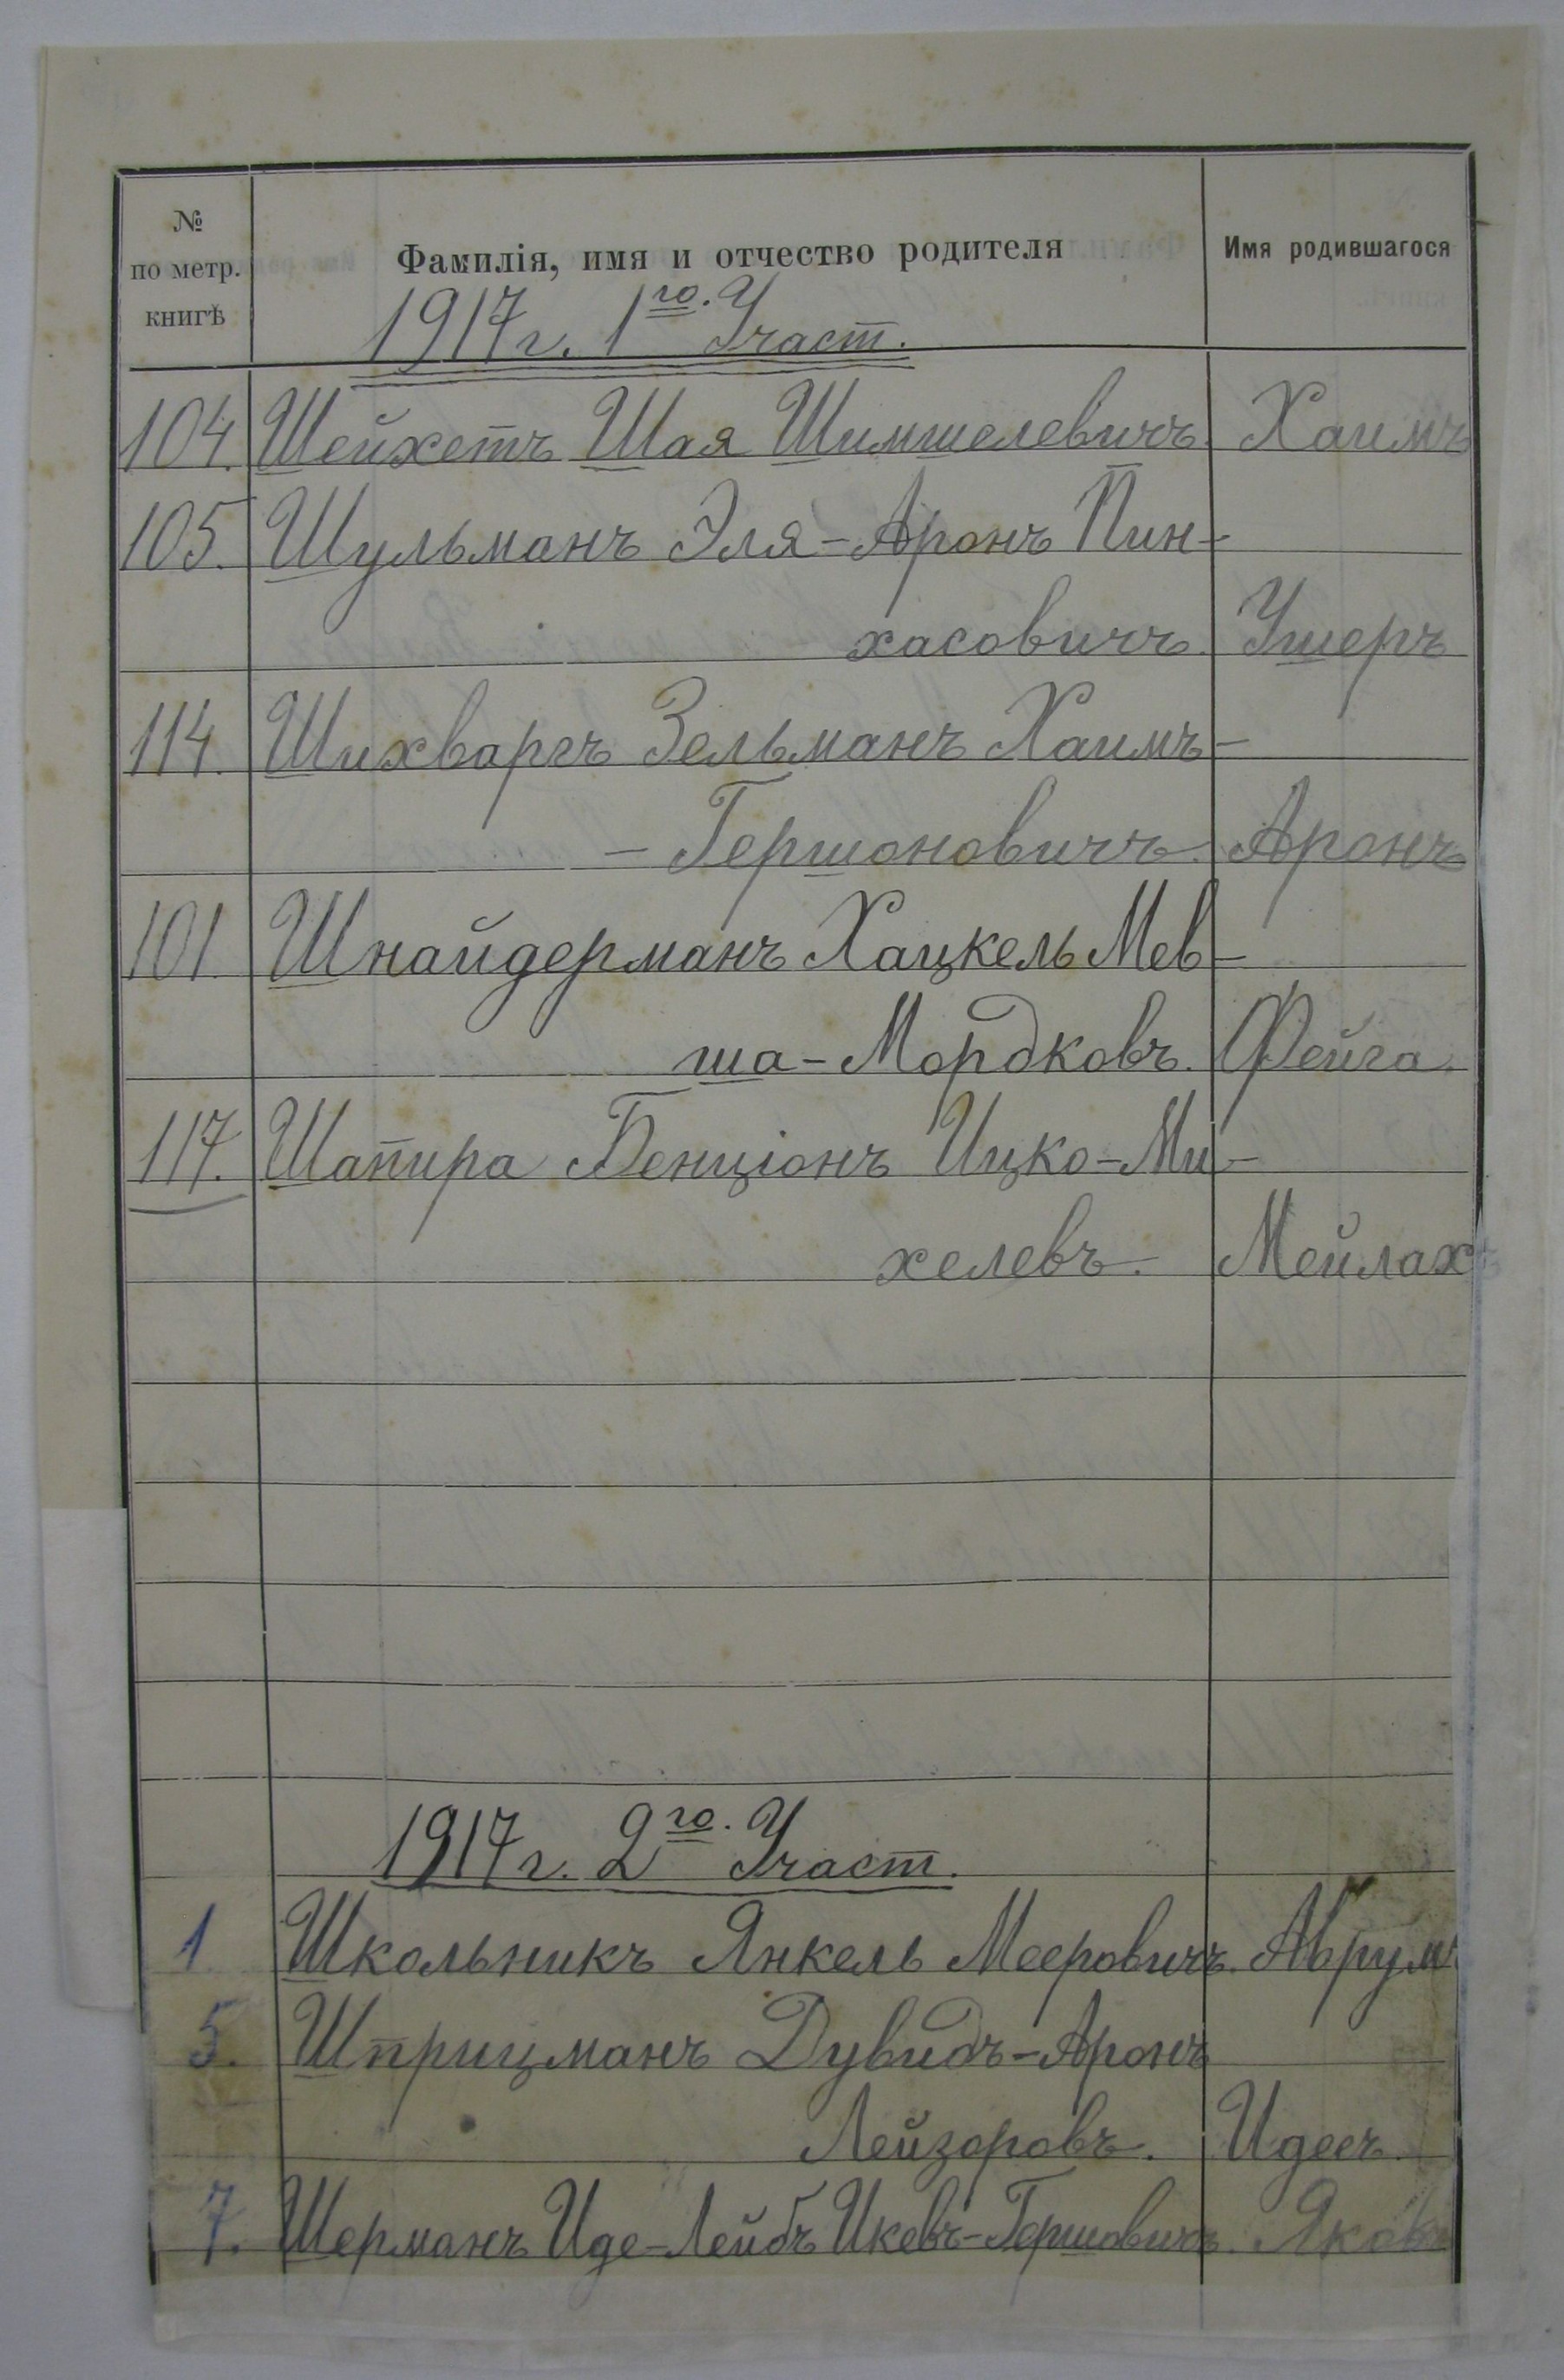 №
по метр.
книгѣ
Фамилія, имя и отчество родителя
Имя родившагося
1917 г. 1го. Участ.
104. Шейхетъ Шая Шимшелевичъ. Хаимъ
105. Шульманъ Эля-Аронъ Пин-
хасовичъ. Ушеръ
114. Шихваргъ Зельманъ Хаимъ-
- Гершоновичъ. Аронъ
101. Шнайдерманъ Хацкель Мев-
ша-Мордковъ. Фейга.
117. Шапира Бенціонъ Ицко-Ми-
хелевъ. Мейлахъ
1917 г. 2го. Участ.
1 Школьникъ Янкель Мееровичъ. Аврумъ
5. Шприцманъ Дувидъ-Аронъ
Лейзоровъ. Идесъ
7. Шерманъ Иде-Лейбъ Икевъ-Гершовичъ. Яковъ